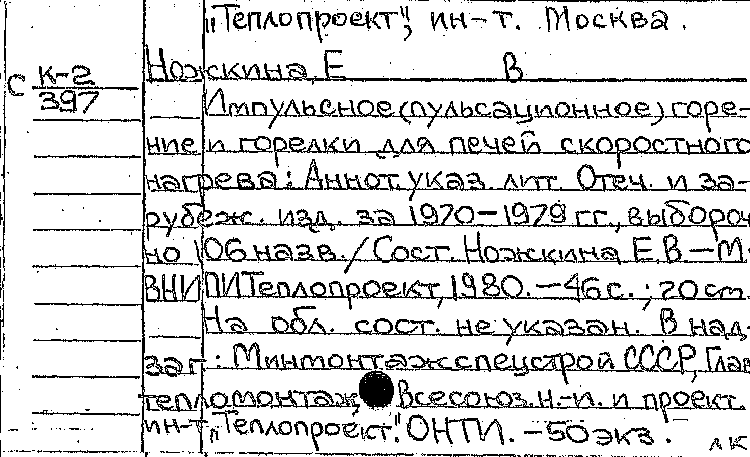 „Теплопроект“, ин-т. Москва.
Ножкина, Е В
С К-2
397
Импульсное (пульсационное) горе-
ние и горелки для печей скоростного
нагрева: Аннот. указ. лит. Отеч. и за-
рубеж. изд. за 1970-1979 гг., выбороч
но 106 назв. / Сост. Ножкина Е.В — М.
ВНИПИТеплопроект, 1980. — 46 с.; 20 cm.
На обл. сост. не указан. В над.
заг: Минмонтажспецстрой СССР, Глав
тепломонтаж, Всесоюз. н.-и. и проект.
ин-т „Теплопроект“. ОНТИ. — 50 экз.
лк